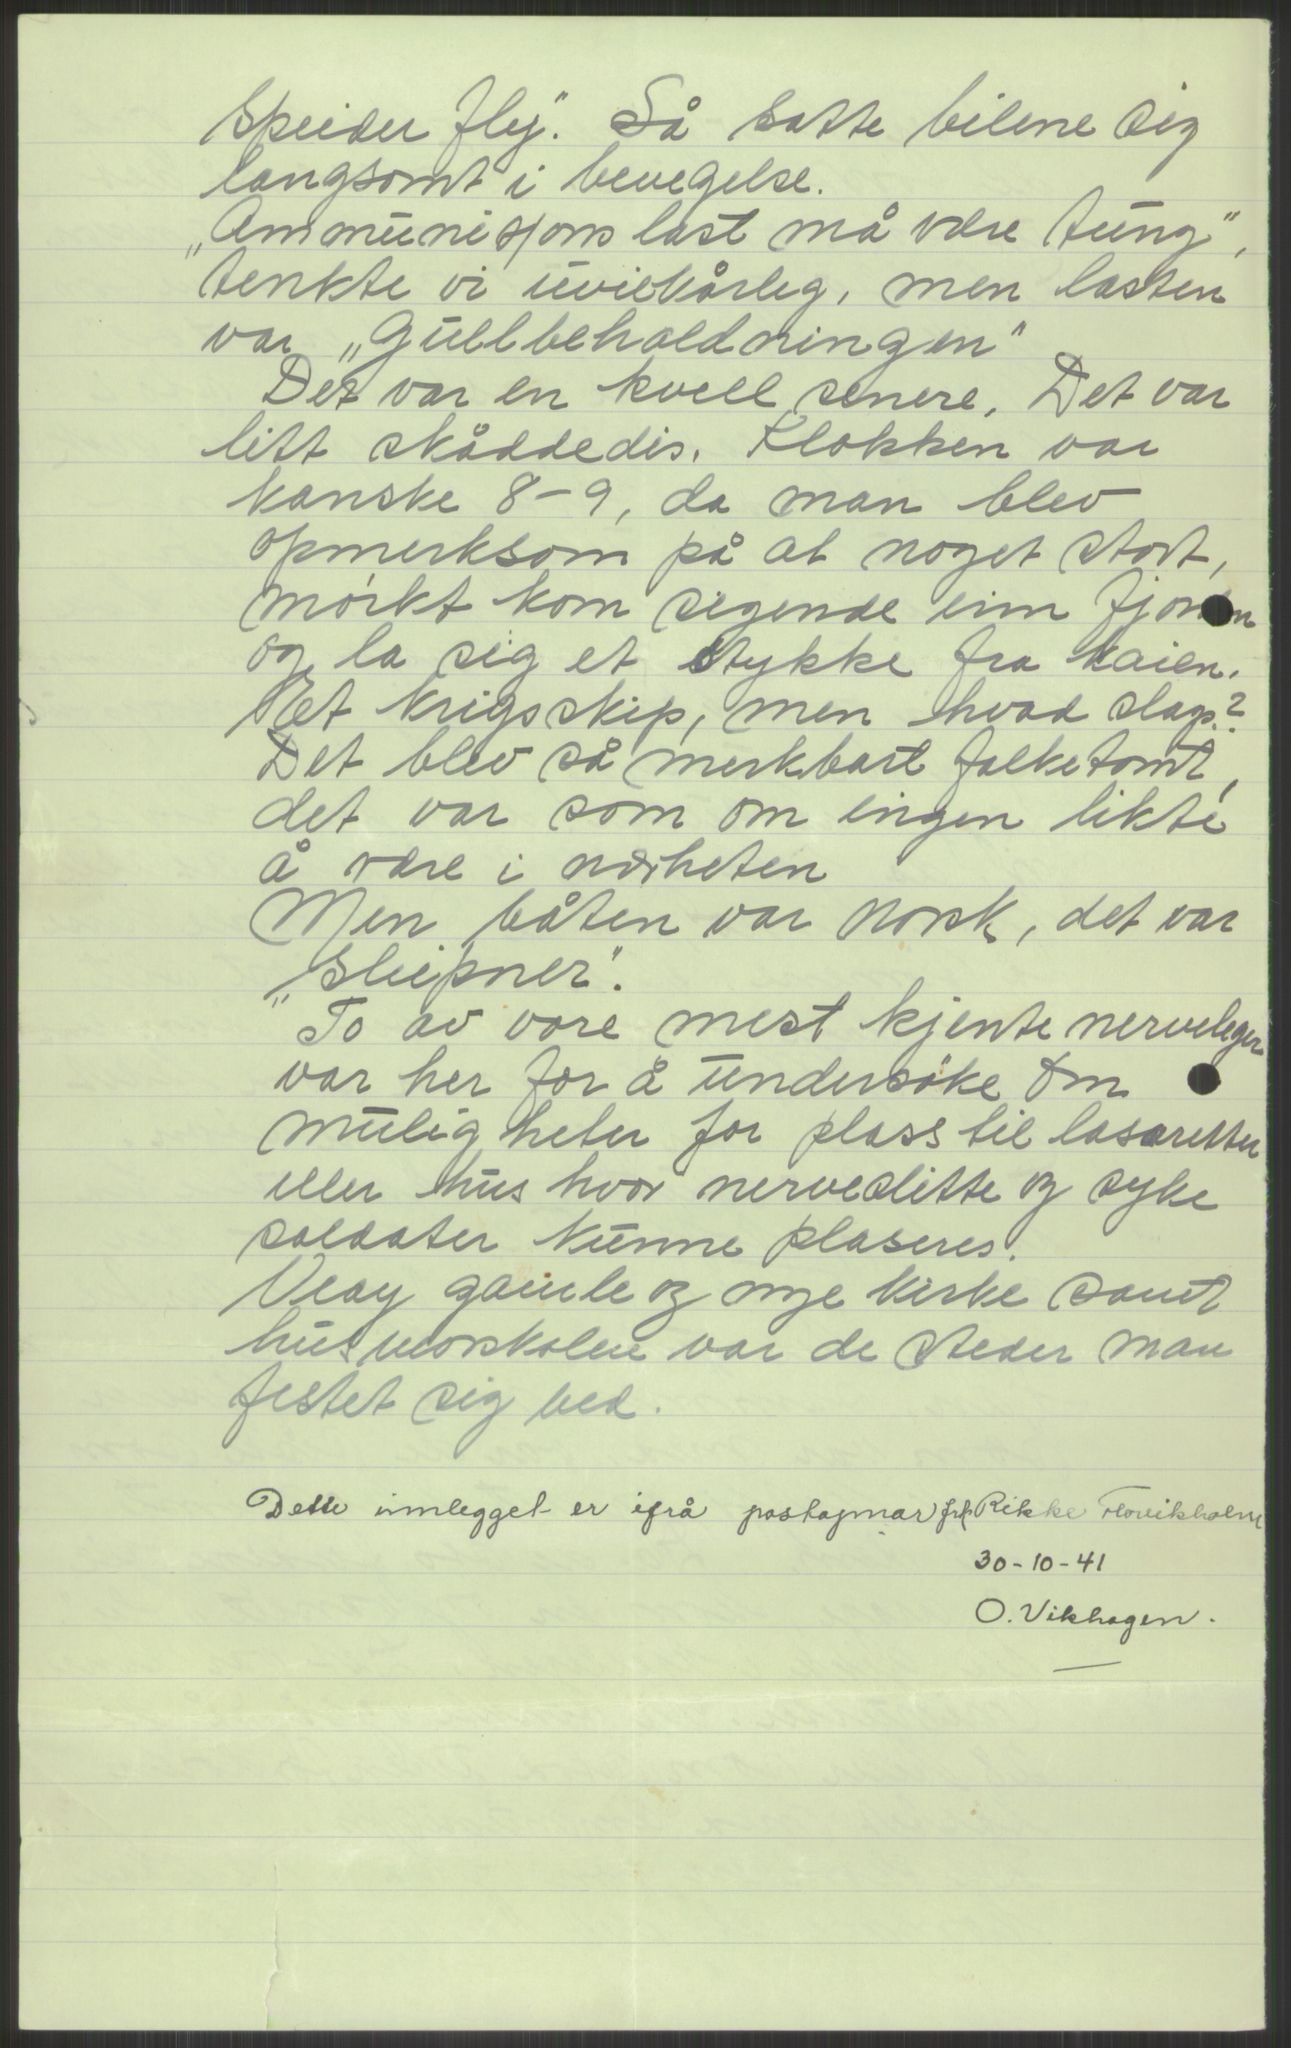 Speider fly". Så satte bilene sig
langsomt i bevegelse.
„Ammunisjons last må være tung",
tenkte vi uvilkårleg, men lasten
var „Gullbeholdningen"
Det var en kvell senere. Det var
litt skåddedis. Klokken var
kanske 8-9, da man blev
opmerksom på at noget stort,
mørkt kom sigende inn fjorden
og la sig et stykke fra kaien.
Et krigsskip, men hvad slags?
Det blev så merkbart folketomt,
det var som om ingen likte
å være i nærheten
Men båten var norsk, det var
„Sleipner".
To av vore mest kjente nerveleger
var her for å undersøke om
muligheter for plass til lasaretter
eller hus hvor nerveslitte og syke
soldater kunne plaseres.
Veøy gamle og nye kirke samt
husmorskolen var de steder man
festet sig ved.
Dette innlegget er ifrå postopnar frk. Rikke
30-10-41
O. Vikhagen.